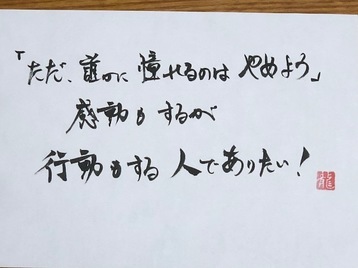 「ただ、誰かに憧せるのは やめよう」
感動も するが
行動もする 人でありたい!
龍